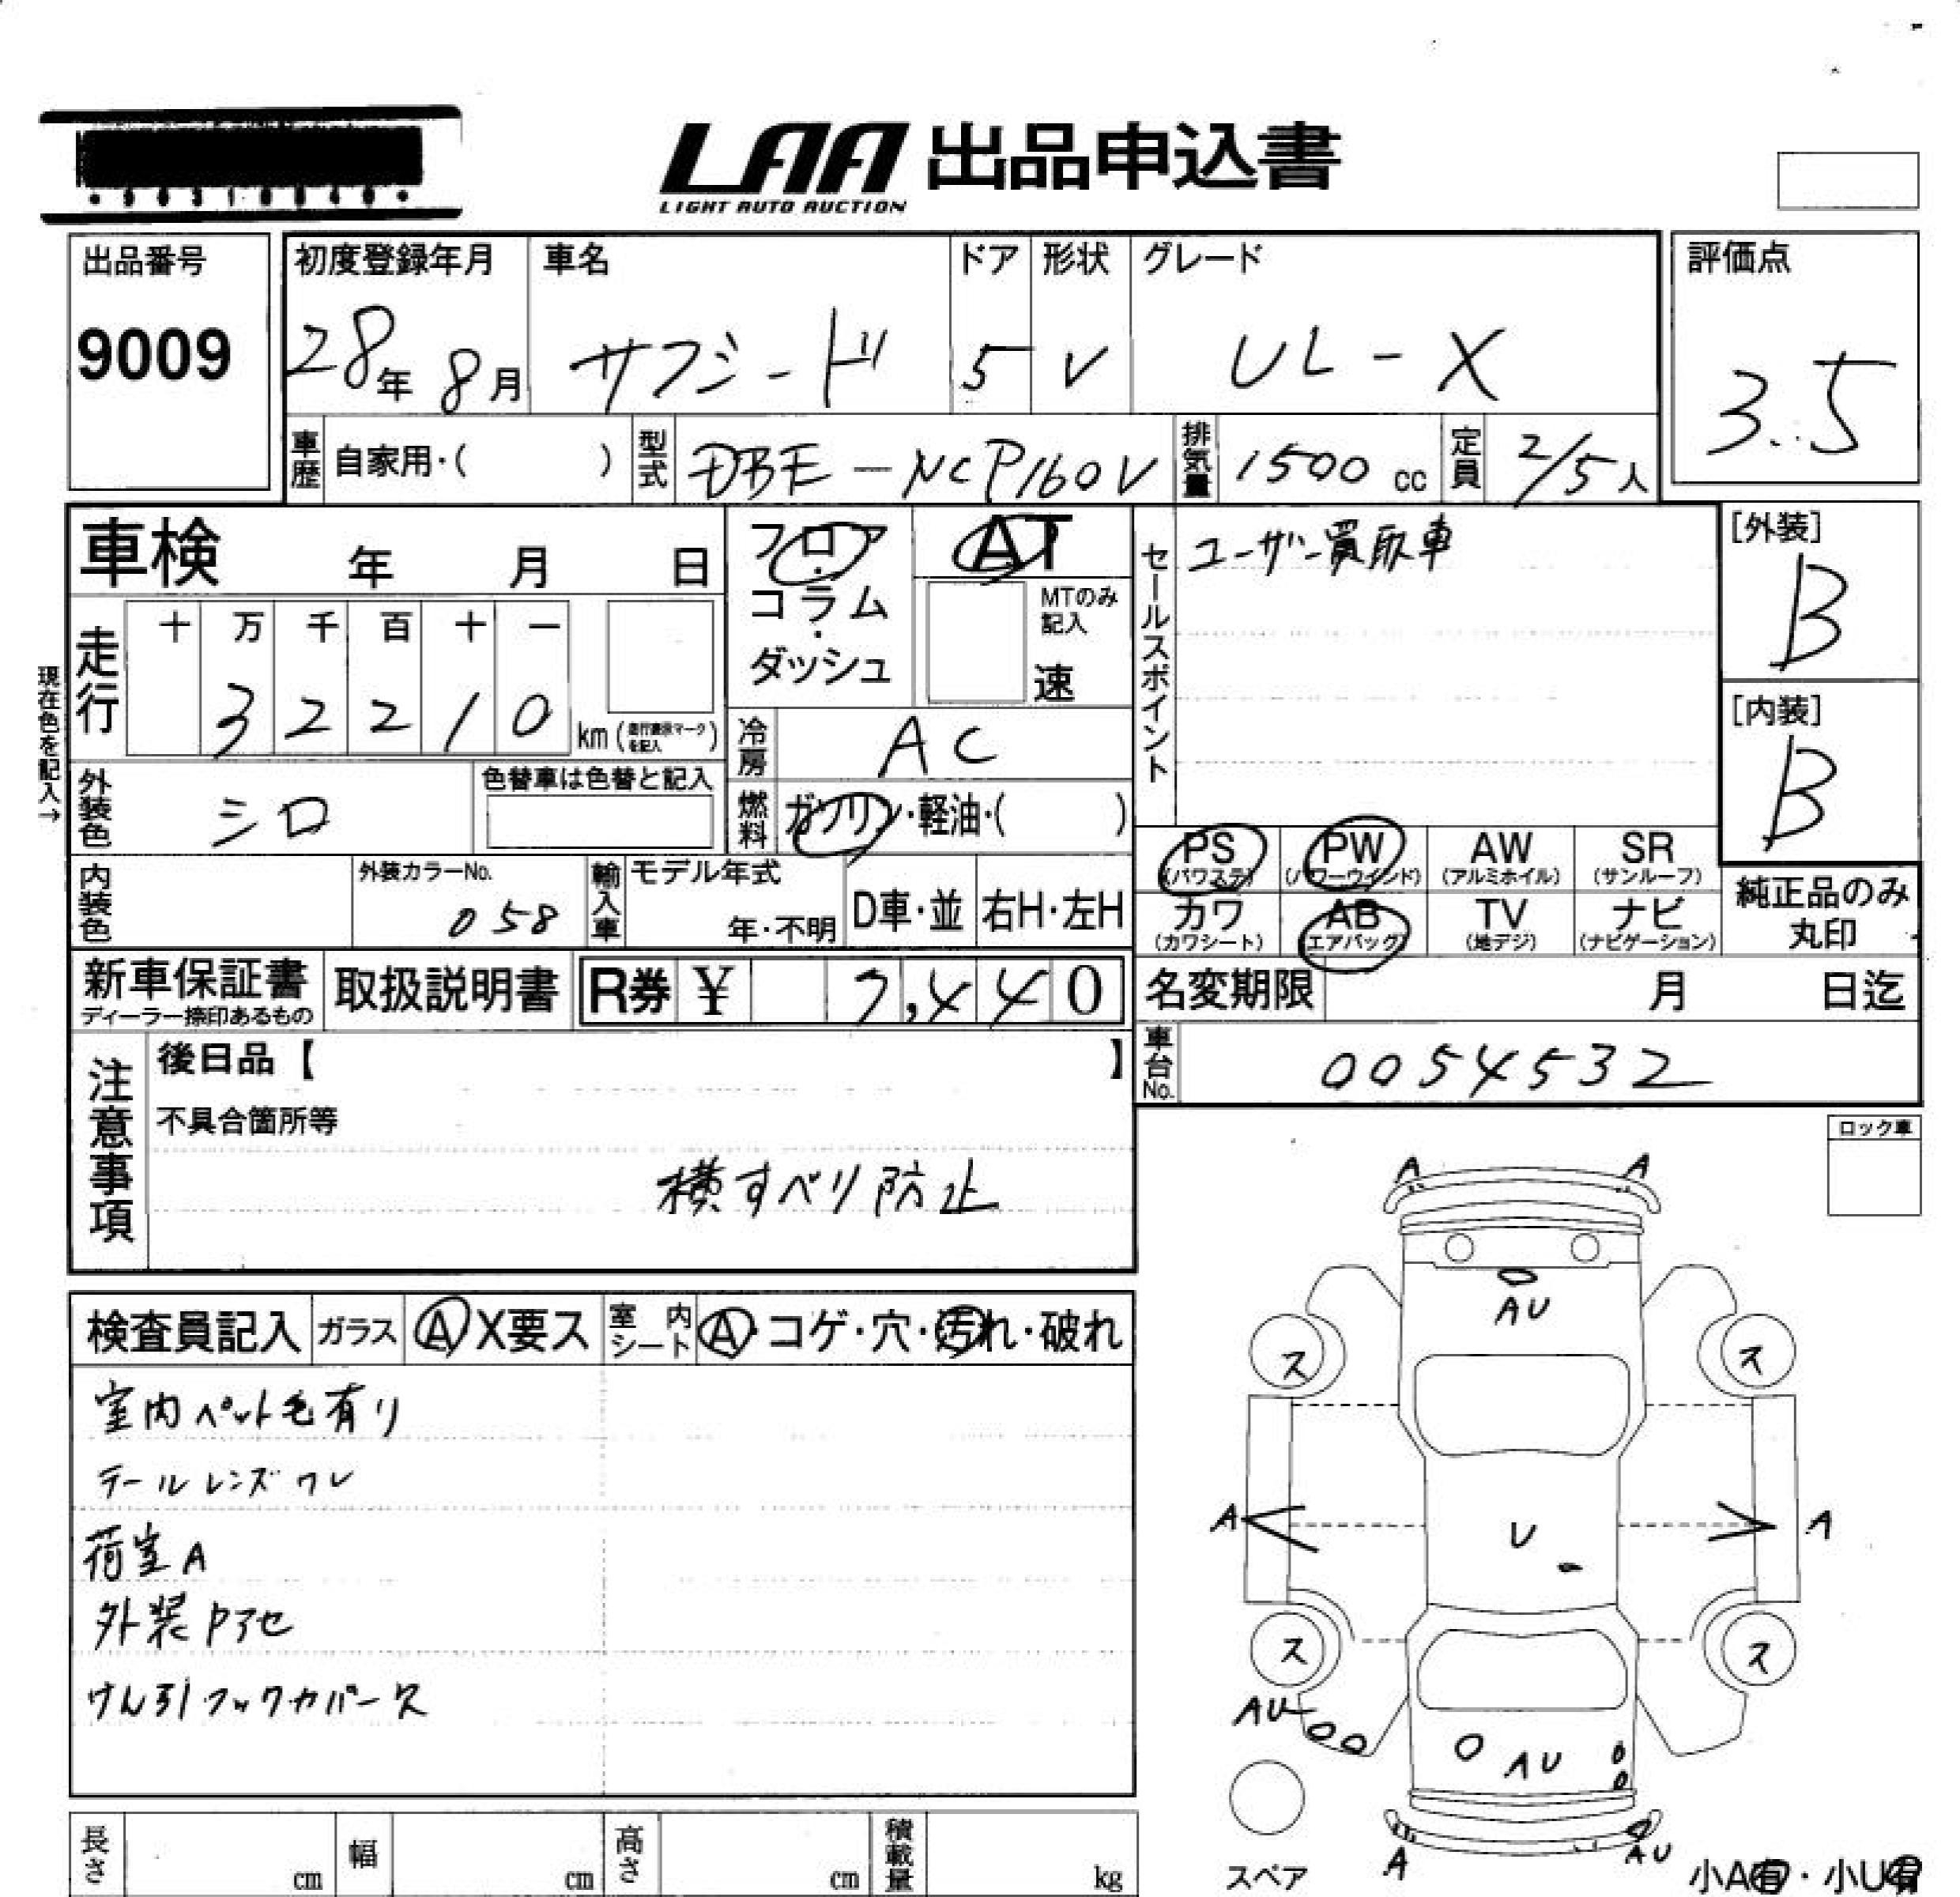 LAA 出品申込書
LIGHT AUTO AUCTION
出品番号
9009
初度登録年月
28年 8月
車名
サクシード
ドア
5
形状
V
グレード
UL-X
評価点
3.5
車歴
自家用・( )
型式
DBE-NCP160V
排気量
1500 cc
定員
2/5人
車検 年 月 日
フロア
・
コラム
・
ダッシュ
AT
MTのみ
記入
速
セールスポイント
ユーザー買取車
[外装]
B
[内装]
B
現在色を記入→
走行
十 万 千 百 十 一
3 2 2 1 0
km (走行表示マークを記入)
冷房
AC
外装色
シロ
色替車は色替と記入
燃料
ガソリン・軽油・( )
PS
(パワステ)
PW
(パワーウインド)
AW
(アルミホイル)
SR
(サンルーフ)
カワ
(カワシート)
AB
(エアバッグ)
TV
(地デジ)
ナビ
(ナビゲーション)
純正品のみ
丸印
内装色
外装カラーNo.
058
輸入車
モデル年式
年・不明
D車・並
右H・左H
新車保証書
ディーラー捺印あるもの
取扱説明書
R券 ¥ 7,440
名変期限 月 日迄
車台No.
0054532
注意事項
後日品【 】
不具合箇所等
横すべり防止
ロック車
検査員記入
ガラス
A X要ス
室内シート
A・コゲ・穴・汚れ・破れ
室内ペット毛有り
テールレンズワレ
荷室A
外装Pアセ
けん引フックカバー欠
A A
AU
ス ス
A U A
ス ス
AU
AU
A AU
スペア
小A有・小U有
長さ cm
幅 cm
高さ cm
積載量 kg